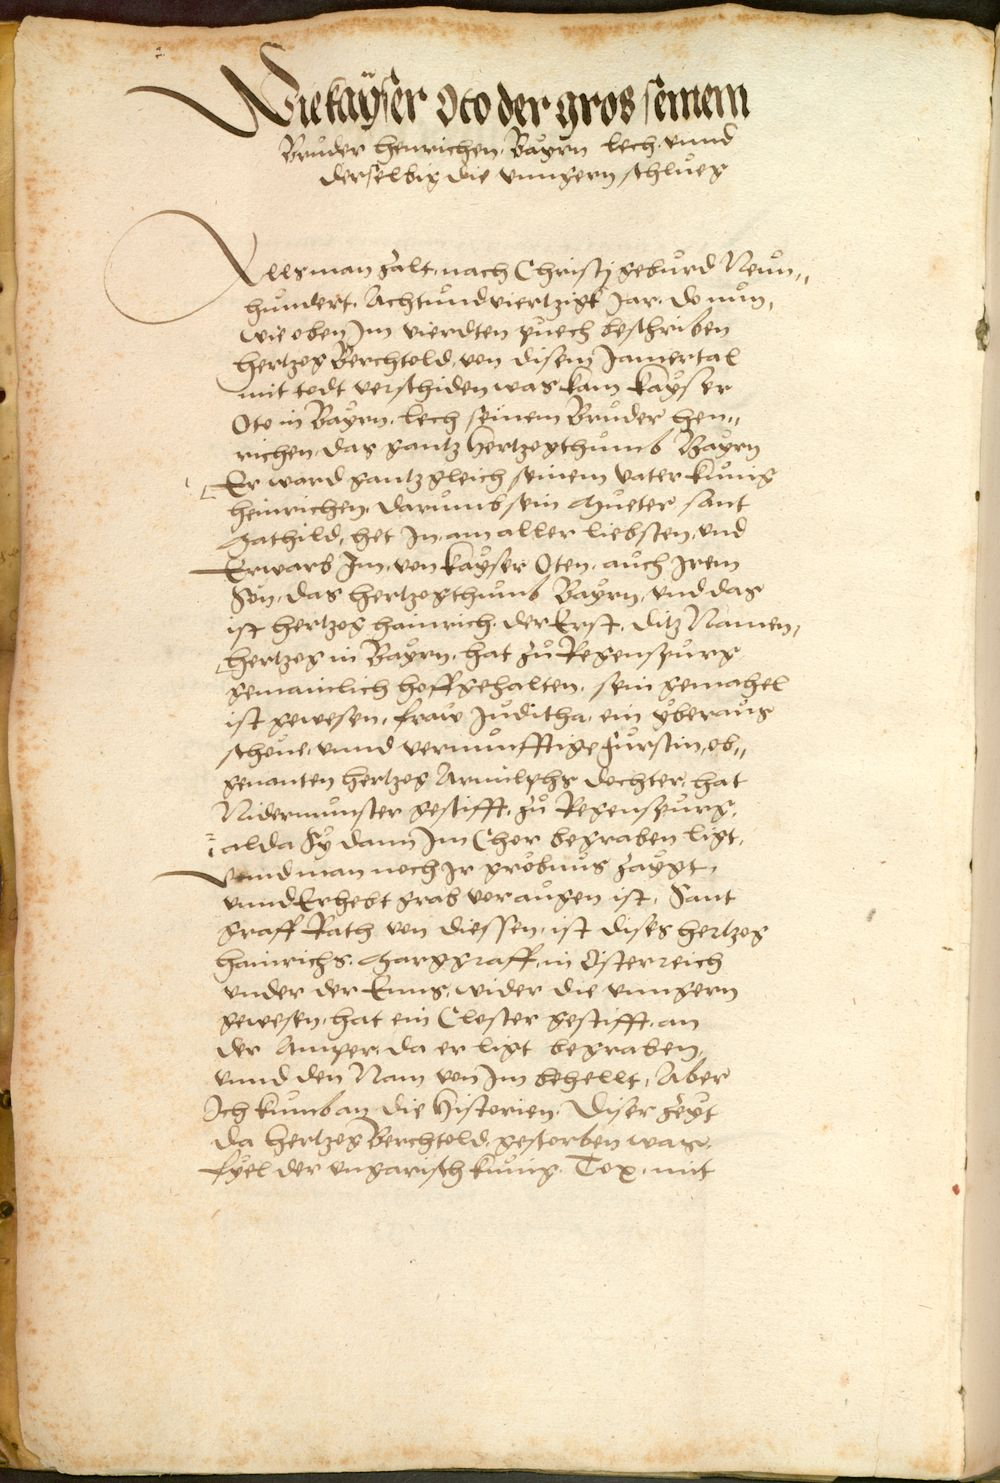 Wie kaÿser Oto der gros seinem
Brůder henrichen Baÿrn lech vnnd
derselbig die vnngern schlueg
Alls man zalt nach Christj geburd Neun„
hundert Achtundviertzigk Jar. do nun,
wie oben Jm vierdten puech beschriben
hertzog Berchtold von disem Jamertal
mit todt verschiden was kam kaÿser
Oto in Baÿrn. lech seinem Bruder hen„
richen das gantz hertzogthumb Baÿrn
Er ward gantz gleich seinem vater kunig
heinrichen, darumb sein Mueter sant
Mathild, het Jn am aller liebsten, vnd
Erwarb Jm, von kaÿser Oten, auch Jrem
Son, das hertzogthumb Baÿrn, vnd das
ist hertzog hainrich der Erst, ditz Namen,
hertzog in Baÿrn, hat zu Regenspurg
gemainlich hoff gehalten, sein gemahel
ist gewesen, fraw Juditha, ein ÿberaus
schone, vnnd vernunfftige furstin, ob„
genanten hertzog Arnnlphs dochter, hat
Nidermunster gestifft, zu Regenspurg,
alda Sÿ dann Jm Chor begraben ligt,
vnnd man noch Jr grobnus zaÿgt,
vnnd Erhebt grab vor augen ist, Sant
graff Rath von Diessen, ist dises hertzog
hainrichs, Marggraff, in Österreich
vnder der Enns, wider die vnngern
gewesen, hat ein Closter gestifft, an
der Amper, da er ligt begraben,
vnnd den Nam von Jm behellt, Aber
Ich kumb an die Historien, Diser Zeÿt
da hertzog Berchtold gestorben was,
fÿel der vngarisch kunig Tox, mit